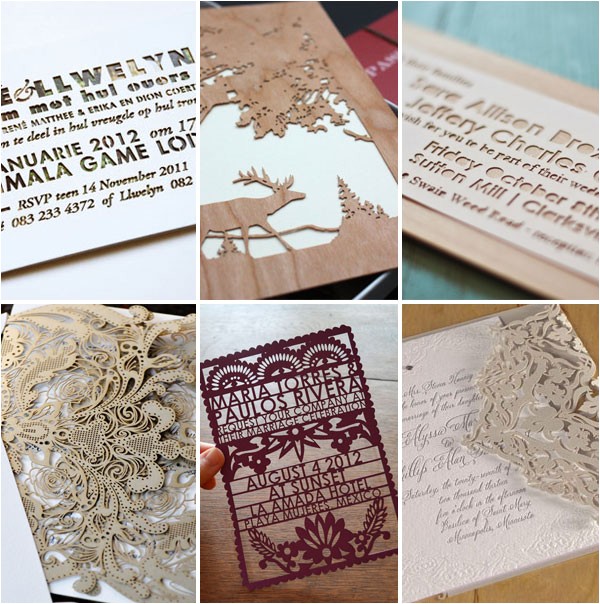 E&LLWELYN
m met hul ouers
RENÉ MATTHEE & ERIKA EN DION COERT
m te deel in hul vreugde op hul tro
ANUARIE 2012 om 17
MALA GAME LO
RSVP teen 14 November 2011
of 083 233 4372 of Llwelyn 082
their families
Sara Allison Bro
Jeffery Charles
wish for you to be part of their wed
Friday October 8th
Sutton Mill | Clarksv
Swain Weed Road - Reception
MARIA TORRES &
PAULOS RIVERA
REQUEST YOUR COMPANY AT
THEIR MARRIAGE CELEBRATION
AUGUST 4 2012
AT SUNSET
LA AMADA HOTEL
PLAYA MUJERES, MEXICO
Mrs. Stona
of your
marriage of their daughter
Alyssa
Alan
Saturday, the twenty-seventh of
two thousand thirteen
five o'clock in the afternoon
Basilica of Saint Mary
Minneapolis, Minnesota